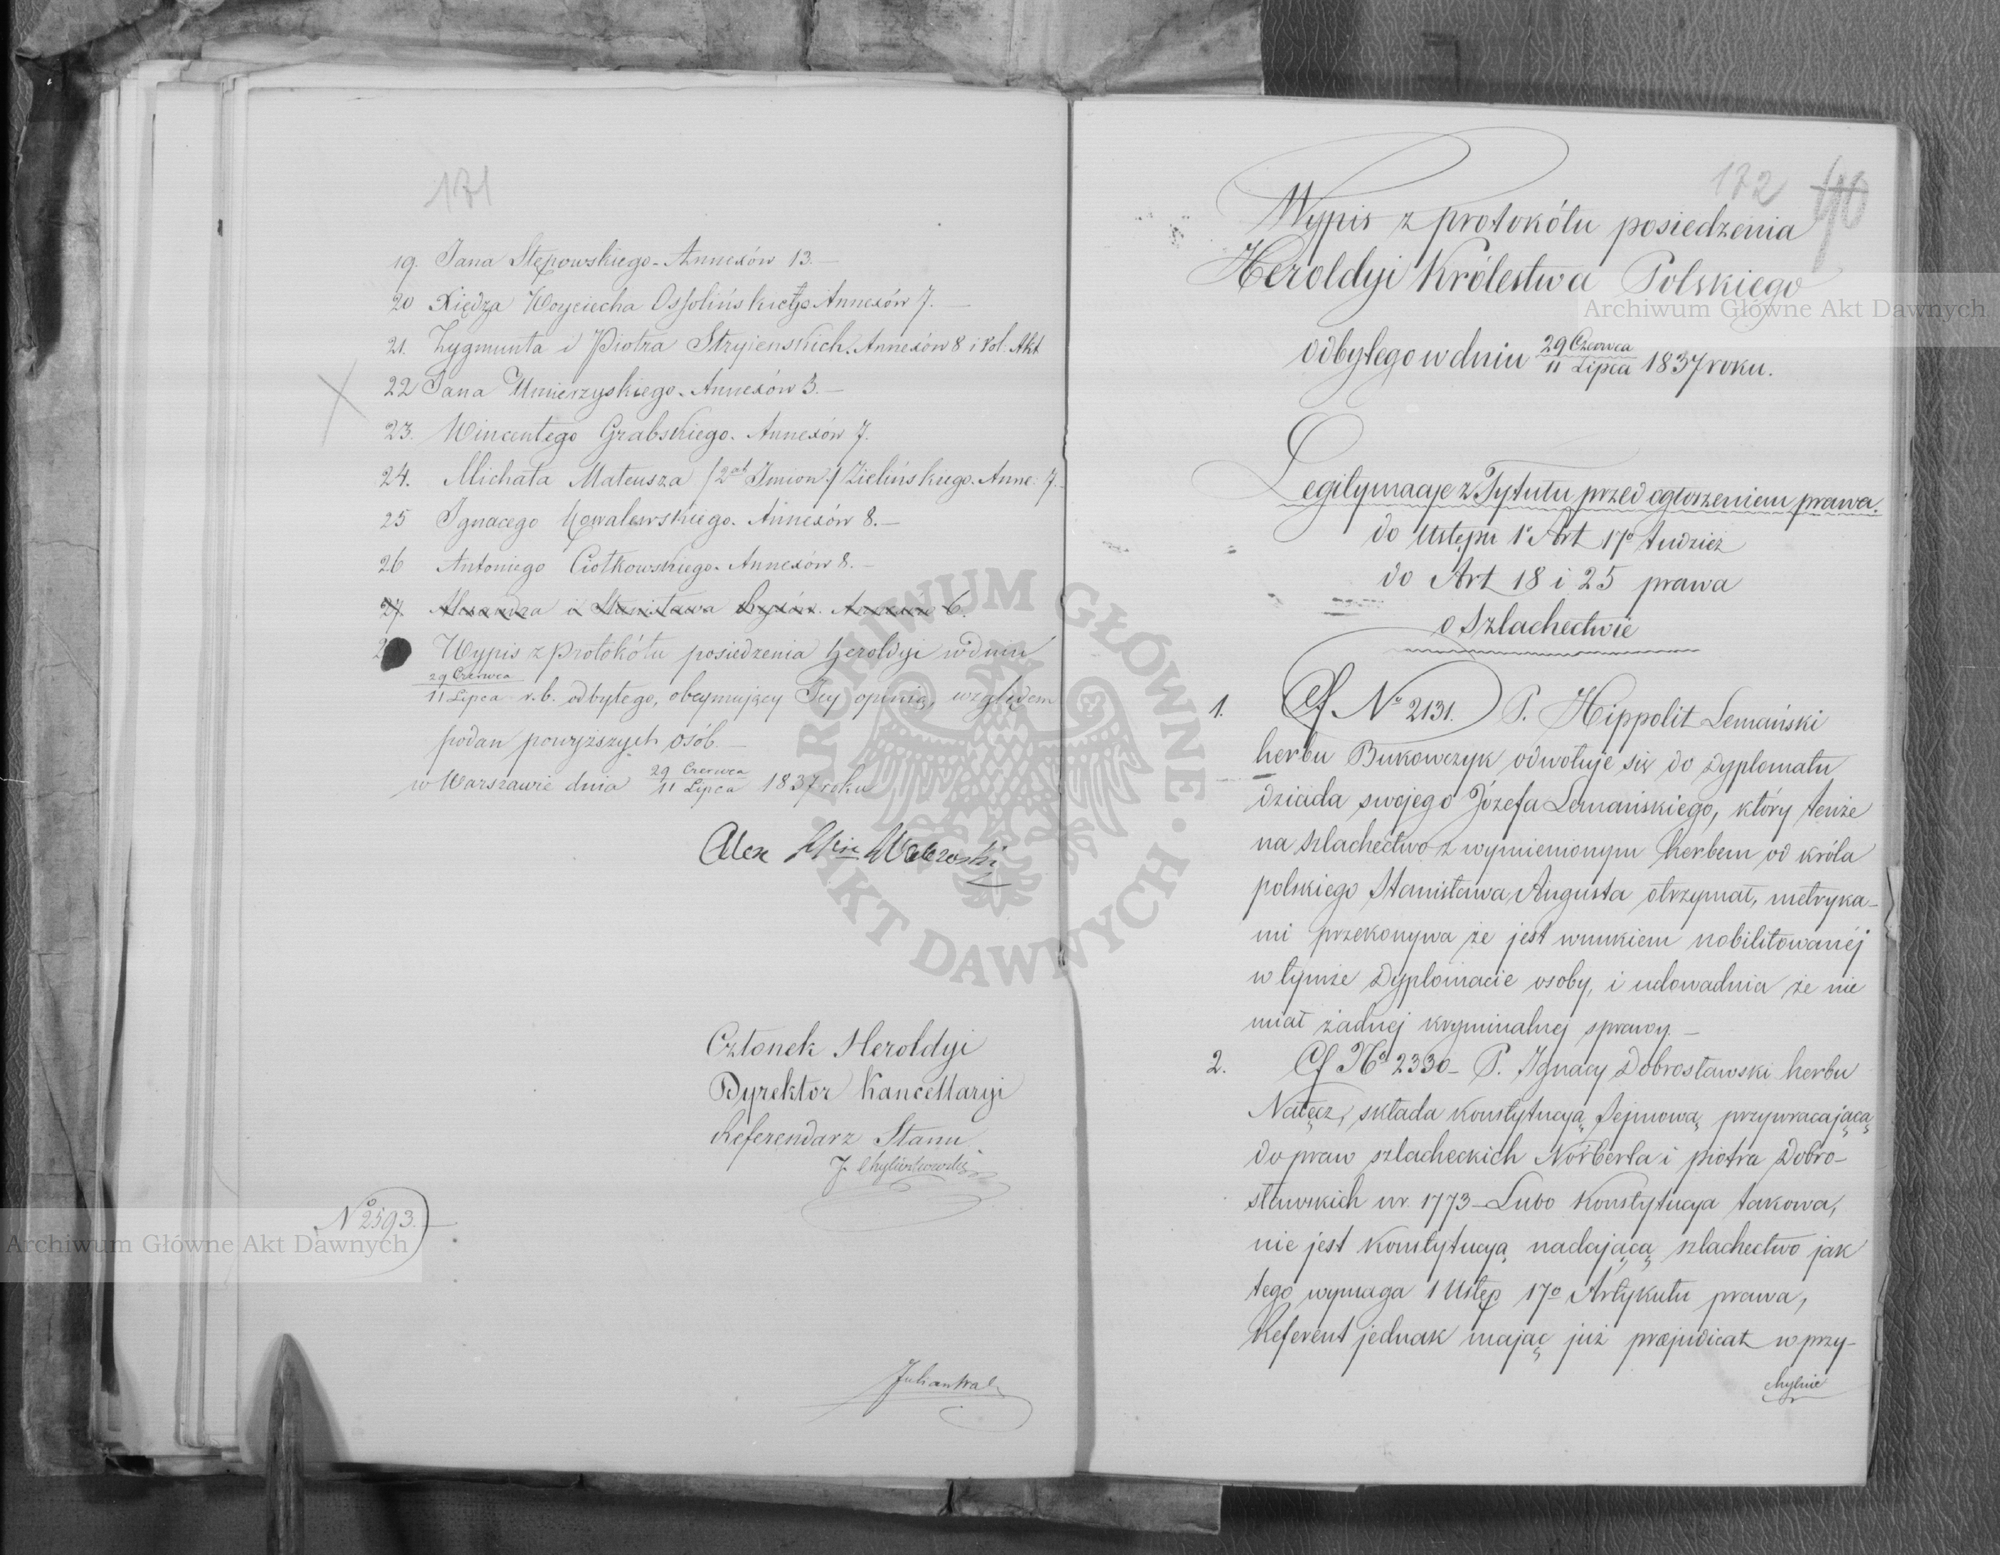 171
19. Jana Stępowskiego - Annexów 13. —
20 Xiędza Woyciecha Ossolińskiego Annexów 7. —
21. Zygmunta i Piotra Stryienskich. Annexów 8 i Vol. Akt
22 Jana Umierzyskiego - Annexów 3. —
23. Wincentego Grabskiego. Annexów 7.
24. Michała Mateusza /2ch Imion/ Zielińskiego. Anne: 7.
25 Ignacego Kowalewskiego. Annexów 8. —
26 Antoniego Ciołkowskiego. Annexów 8. —
27. i Stanisława Annexów 6.
Wypis z Protokółu posiedzenia Heroldyi w dniu
29 Czerwca
11 Lipca r. b. odbytego, obeymujący Jey opinią, względem
podań powyższych osób. —
w Warszawie dnia 29 Czerwca / 11 Lipca 1837 roku
Alex
Członek Heroldyi
Dyrektor Kancellaryi
Referendarz Stanu
No 2593.
172
Wypis z protokółu posiedzenia
Heroldyi Królestwa Polskiego
odbytego w dniu 29 Czerwca / 11 Lipca 1837 roku.
Legitymacje z Tytułu przed ogłoszeniem prawa.
do Ustępu 1o Art 17o tudzież
do Art 18 i 25 prawa
o Szlachectwie
1. Cf No 2131. P. Hippolit Lemański
herbu Bukowczyk odwołuje się do dyplomatu
dziada swojego Józefa Lemańskiego, który tenże
na szlachectwo z wymienionym herbem od króla
polskiego Stanisława Augusta otrzymał, metryka-
mi przekonywa że jest wnukiem nobilitowanéj
w tymże dyplomacie osoby, i udowadnia że nie
miał żadnej kryminalnej sprawy. —
2. Cf No 2330 - P. Ignacy Dobrosławski herbu
Nałęcz, składa konstytucyą Sejmową przywracającą
do praw szlacheckich Norberta i piotra Dobro-
sławskich w r. 1773 - Lubo Konstytucya takowa,
nie jest konstytucyą nadającą szlachectwo jak
tego wymaga 1 Ustęp 17o Artykułu prawa,
Referent jednak mając już præjudicat w przy-
chylnie
Archiwum Główne Akt Dawnych
Archiwum Główne Akt Dawnych
ARCHIWUM GŁÓWNE · AKT DAWNYCH ·